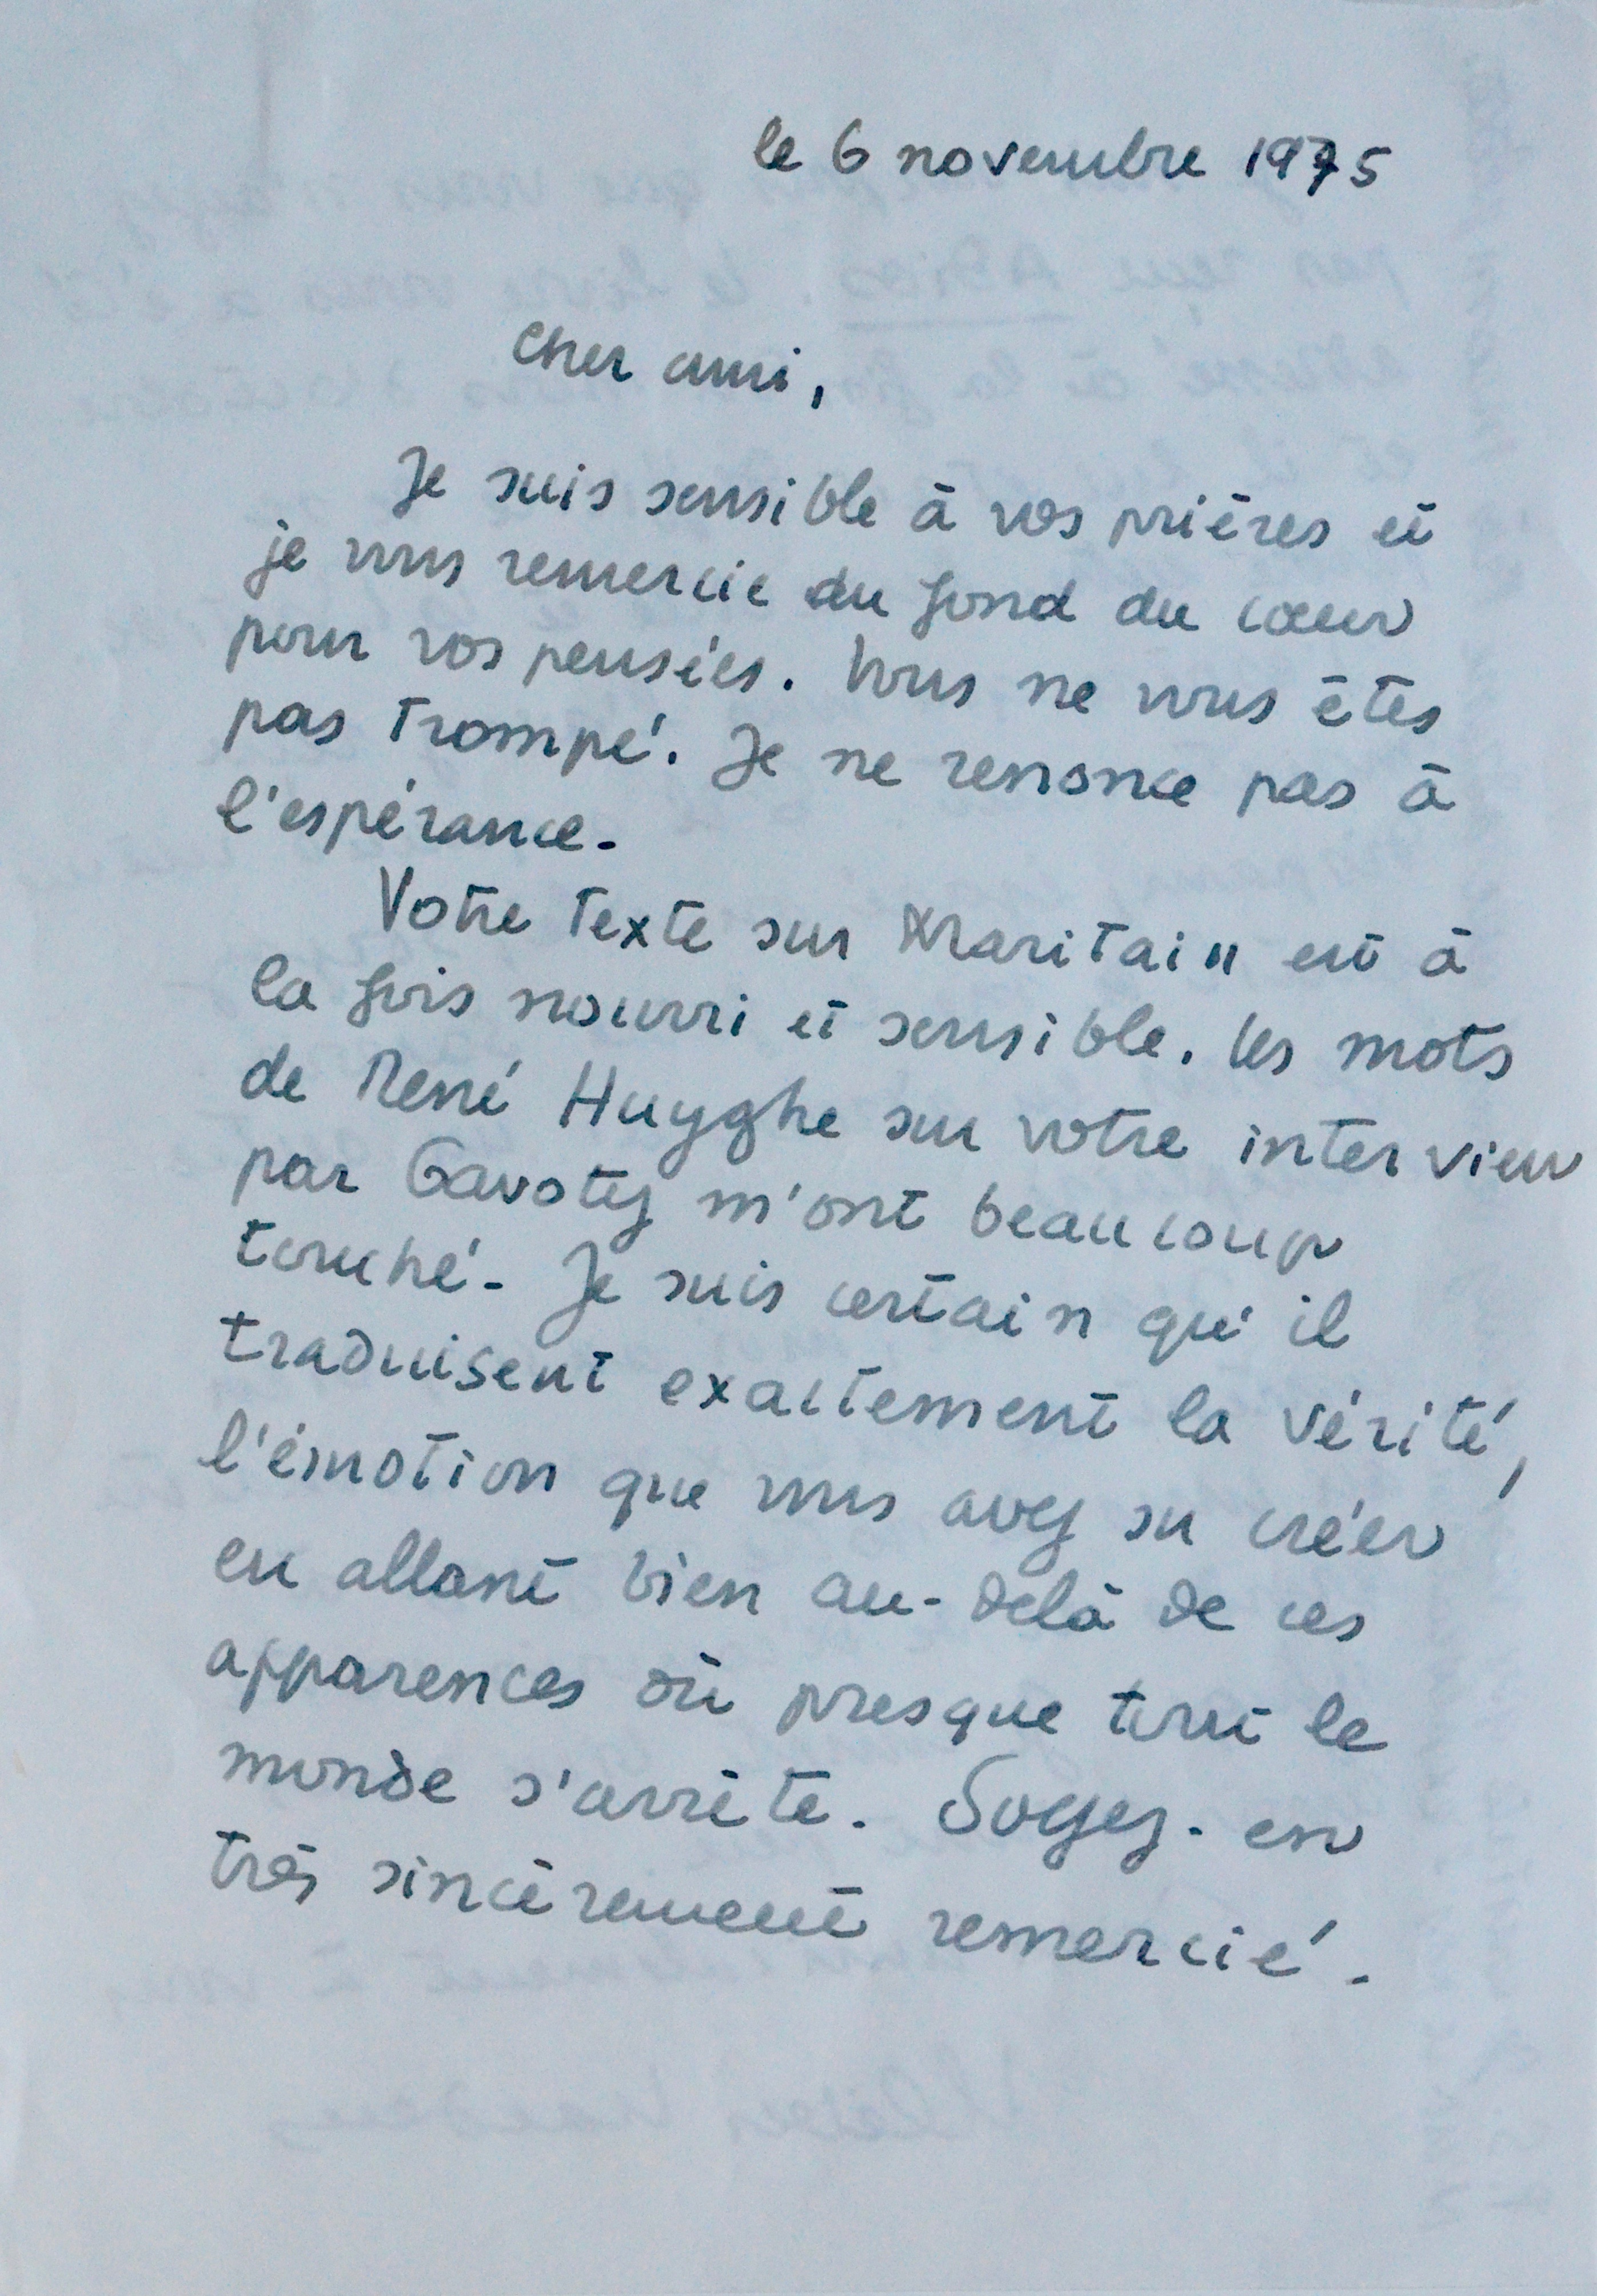 le 6 novembre 1975
Cher ami,
Je suis sensible à vos prières et
je vous remercie du fond du cœur
pour vos pensées. Vous ne vous êtes
pas trompé. Je ne renonce pas à
l'espérance.
Votre texte sur Maritain est à
la fois nourri et sensible. Les mots
de René Huyghe sur votre interview
par Gavoty m'ont beaucoup
touché. Je suis certain qu'il
traduisent exactement la vérité,
l'émotion que vous avez su créer
en allant bien au-delà de ces
apparences où presque tout le
monde s'arrête. Soyez-en
très sincèrement remercié.